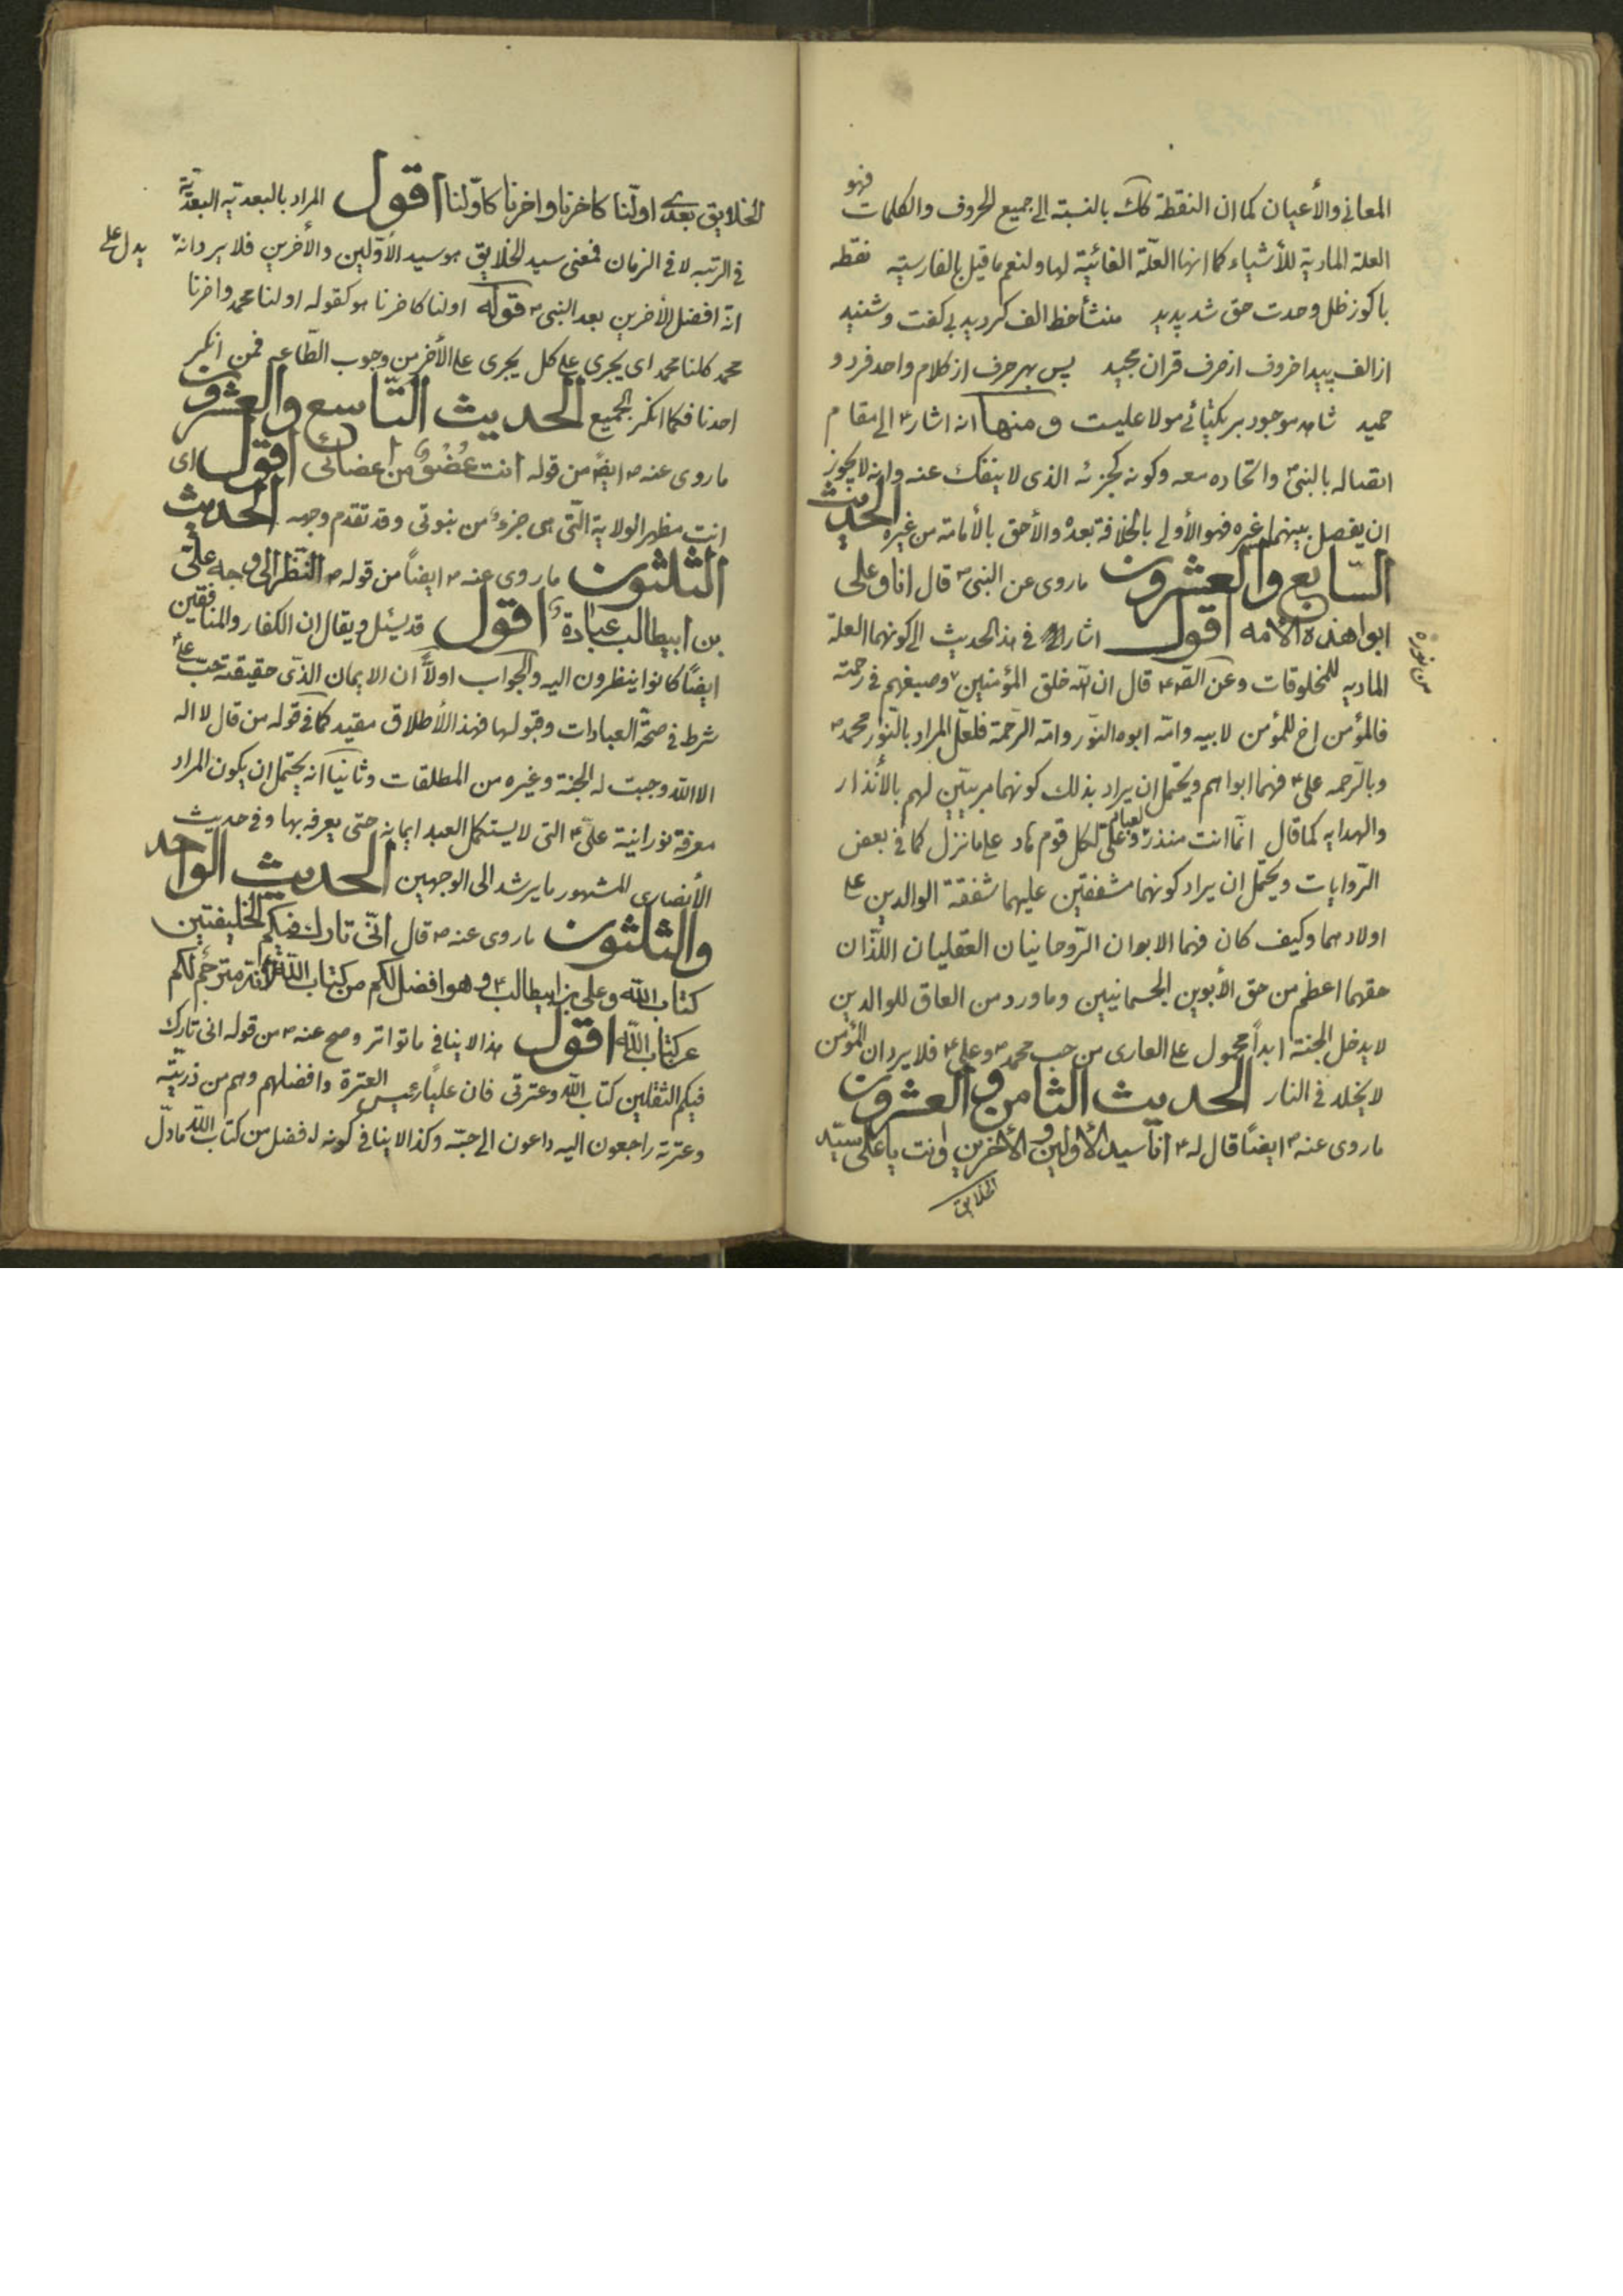 المعانی والأعیان کما ان النقطة کک بالنسبة الی جمیع الحروف والکلمات فهو
العلة المادیة للأشیاء کما انها العلّة الغائیّة لها ولنعم ما قیل بالفارسیّه نقطه
باکوز ظل وحدت حق شد پدید منشأ خط الف کردید بی کفت وشنید
از الف پیدا حروف از حرف قران مجید پس بهر حرف از کلام واحد فرد و
حمید شاهد موجود بر یکتائے مولا علیست ومنها انه اشار ع الی مقام
اتصاله بالنبی ص واتحاده معه وکونه کجزئه الذی لا ینفک عنه وانه لا یجوز
ان یفصل بینهما غیره فهو الأولی بالخلافة بعده والأحق بالأمامة من غیره الحدیث
السابع والعشرون ما روی عن النبی ص قال انا وعلی
ابوا هذه الأمه اقول اشار فی هذ الحدیث الی کونهما العلة
المادیه للمخلوقات وعن الصه ع قال ان الله خلق المؤمنین وصبغهم فی رحمته
من نوره
فالمؤمن اخ للمؤمن لابیه وامّه ابوه النّور وامّه الرّحمة فلعلّ المراد بالنّور محمد ص
وبالرّحمه علی ع فهما ابواهم ویحتمل ان یراد بذلک کونهما مربیّین لهم بالأنذار
والهدایه کما قال انّما انت منذر وعلیّ لکل قوم هاد علی ما نزل کما فی بعض
الرّوایات ویحتمل ان یراد کونهما مشفقین علیهما شفقة الوالدین علی
اولادهما وکیف کان فهما الابوان الرّوحانیان العقلیان اللّذان
حقهما اعظم من حق الأبوین الجسمانیین وما ورد من العاق للوالدین
لا یدخل الجنة ابداً محمول علی العاری من حب محمد ص وعلی ع فلا یرد ان المؤمن
لا یخلد فی النار الحدیث الثامن والعشرون
ما روی عنه ص ایضًا قال له ع انا سید الأولین والأخرین وانت یا علی سیّد
الخلایق
الخلایق بعدی اولّنا کاخرنا واخرنا کاوّلنا اقول المراد بالبعدیّه البعدیّة
فی الرتبه لا فی الزمان فمعنی سید الخلایق هو سید الأوّلین والأخرین فلا یرد انه یدل علی
انّه افضل الأخرین بعد النبی ص قوله اولنا کاخرنا هو کقوله اولنا محمد واخرنا
محمد کلنا محمد ای یجری علی کل یجری علی الأخر من وجوب الطّاعه فمن انکر
احدنا فکما انکر الجمیع الحدیث التاسع والعشرون
ما روی عنه ص ایضً من قوله انت عُضْوٌ من أعضائی اقول ای
انت مظهر الولایة الّتی هی جزءٌ من نبوتی وقد تقدم وجهه الحدیث
الثلثون ما روی عنه ص ایضاً من قوله ص النّظر الی وجه علیّ
بن ابیطالب عبادة اقول قد یسئل ویقال ان الکفار والمنافقین
ایضًا کانوا ینظرون الیه والجواب اولاً ان الایمان الذی حقیقته حبّ علی ع
شرط فی صحّة العبادات وقبولها فهذ الأطلاق مقید کما فی قوله من قال لا اله
الا الله وجبت له الجنة وغیره من المطلقات وثانیا انه یحتمل ان یکون المراد
معرفة نورانیة علیّ ع التی لا یستکمل العبد ایمانه حتی یعرفه بها وفی حدیث
الأنصاری المشهور ما یرشد الی الوجهین الحدیث الواحد
والثلثون ما روی عنه ص قال انّی تارک فیکم الخلیفتین
کتاب الله وعلی بن ابیطالب ع وهو افضل لکم من کتاب الله لأنّه مترجم لکم
عن کتاب الله اقول هذا لا ینافی ما تواتر وصح عنه ص من قوله انی تارک
فیکم الثقلین کتاب الله وعترتی فان علیًا رئیس العترة وافضلهم وهم من ذریّته
وعترته راجعون الیه داعون الی حبّه وکذا لا ینافی کونه افضل من کتاب الله ما دلّ